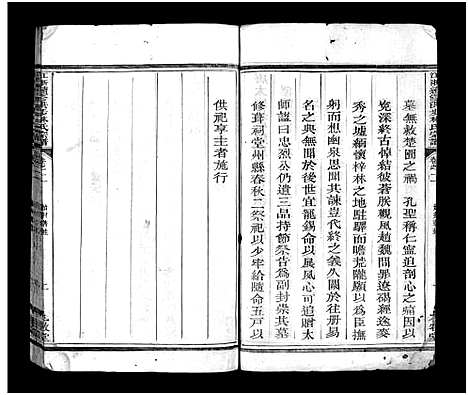 墓無救楚國之禍 孔聖稱仁寧迫剖心之痛因以
冤深終古悼結彼蒼朕觀風趙魏問罪遼碣經途麥
秀之墟緬懷梓林之地駐驛而瞻荒隴願以為臣撫
躬而想幽泉思其諫豈代終之義久闕於往册易
名之典無聞於後世宜寵錫命以展風心可追贈太
師諡曰忠烈公仍遣三品持節祭告為副封崇其墓
修葺祠堂州縣春秋二祭祀以少牢給隨命五戶以
供祀享主者施行